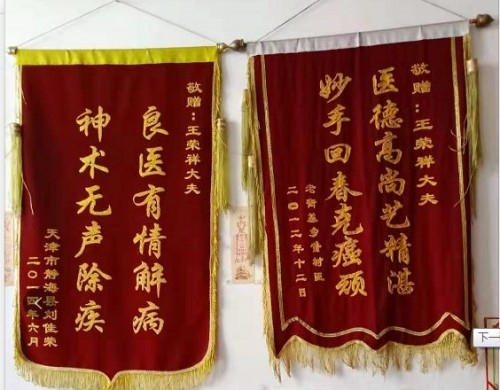 敬赠：王荣祥大夫
良医有情解病
神术无声除疾
天津市静海县刘佳荣
二〇一四年六月
敬赠：王荣祥大夫
医德高尚艺精湛
妙手回春克癌顽
二〇一二年十二日
下一